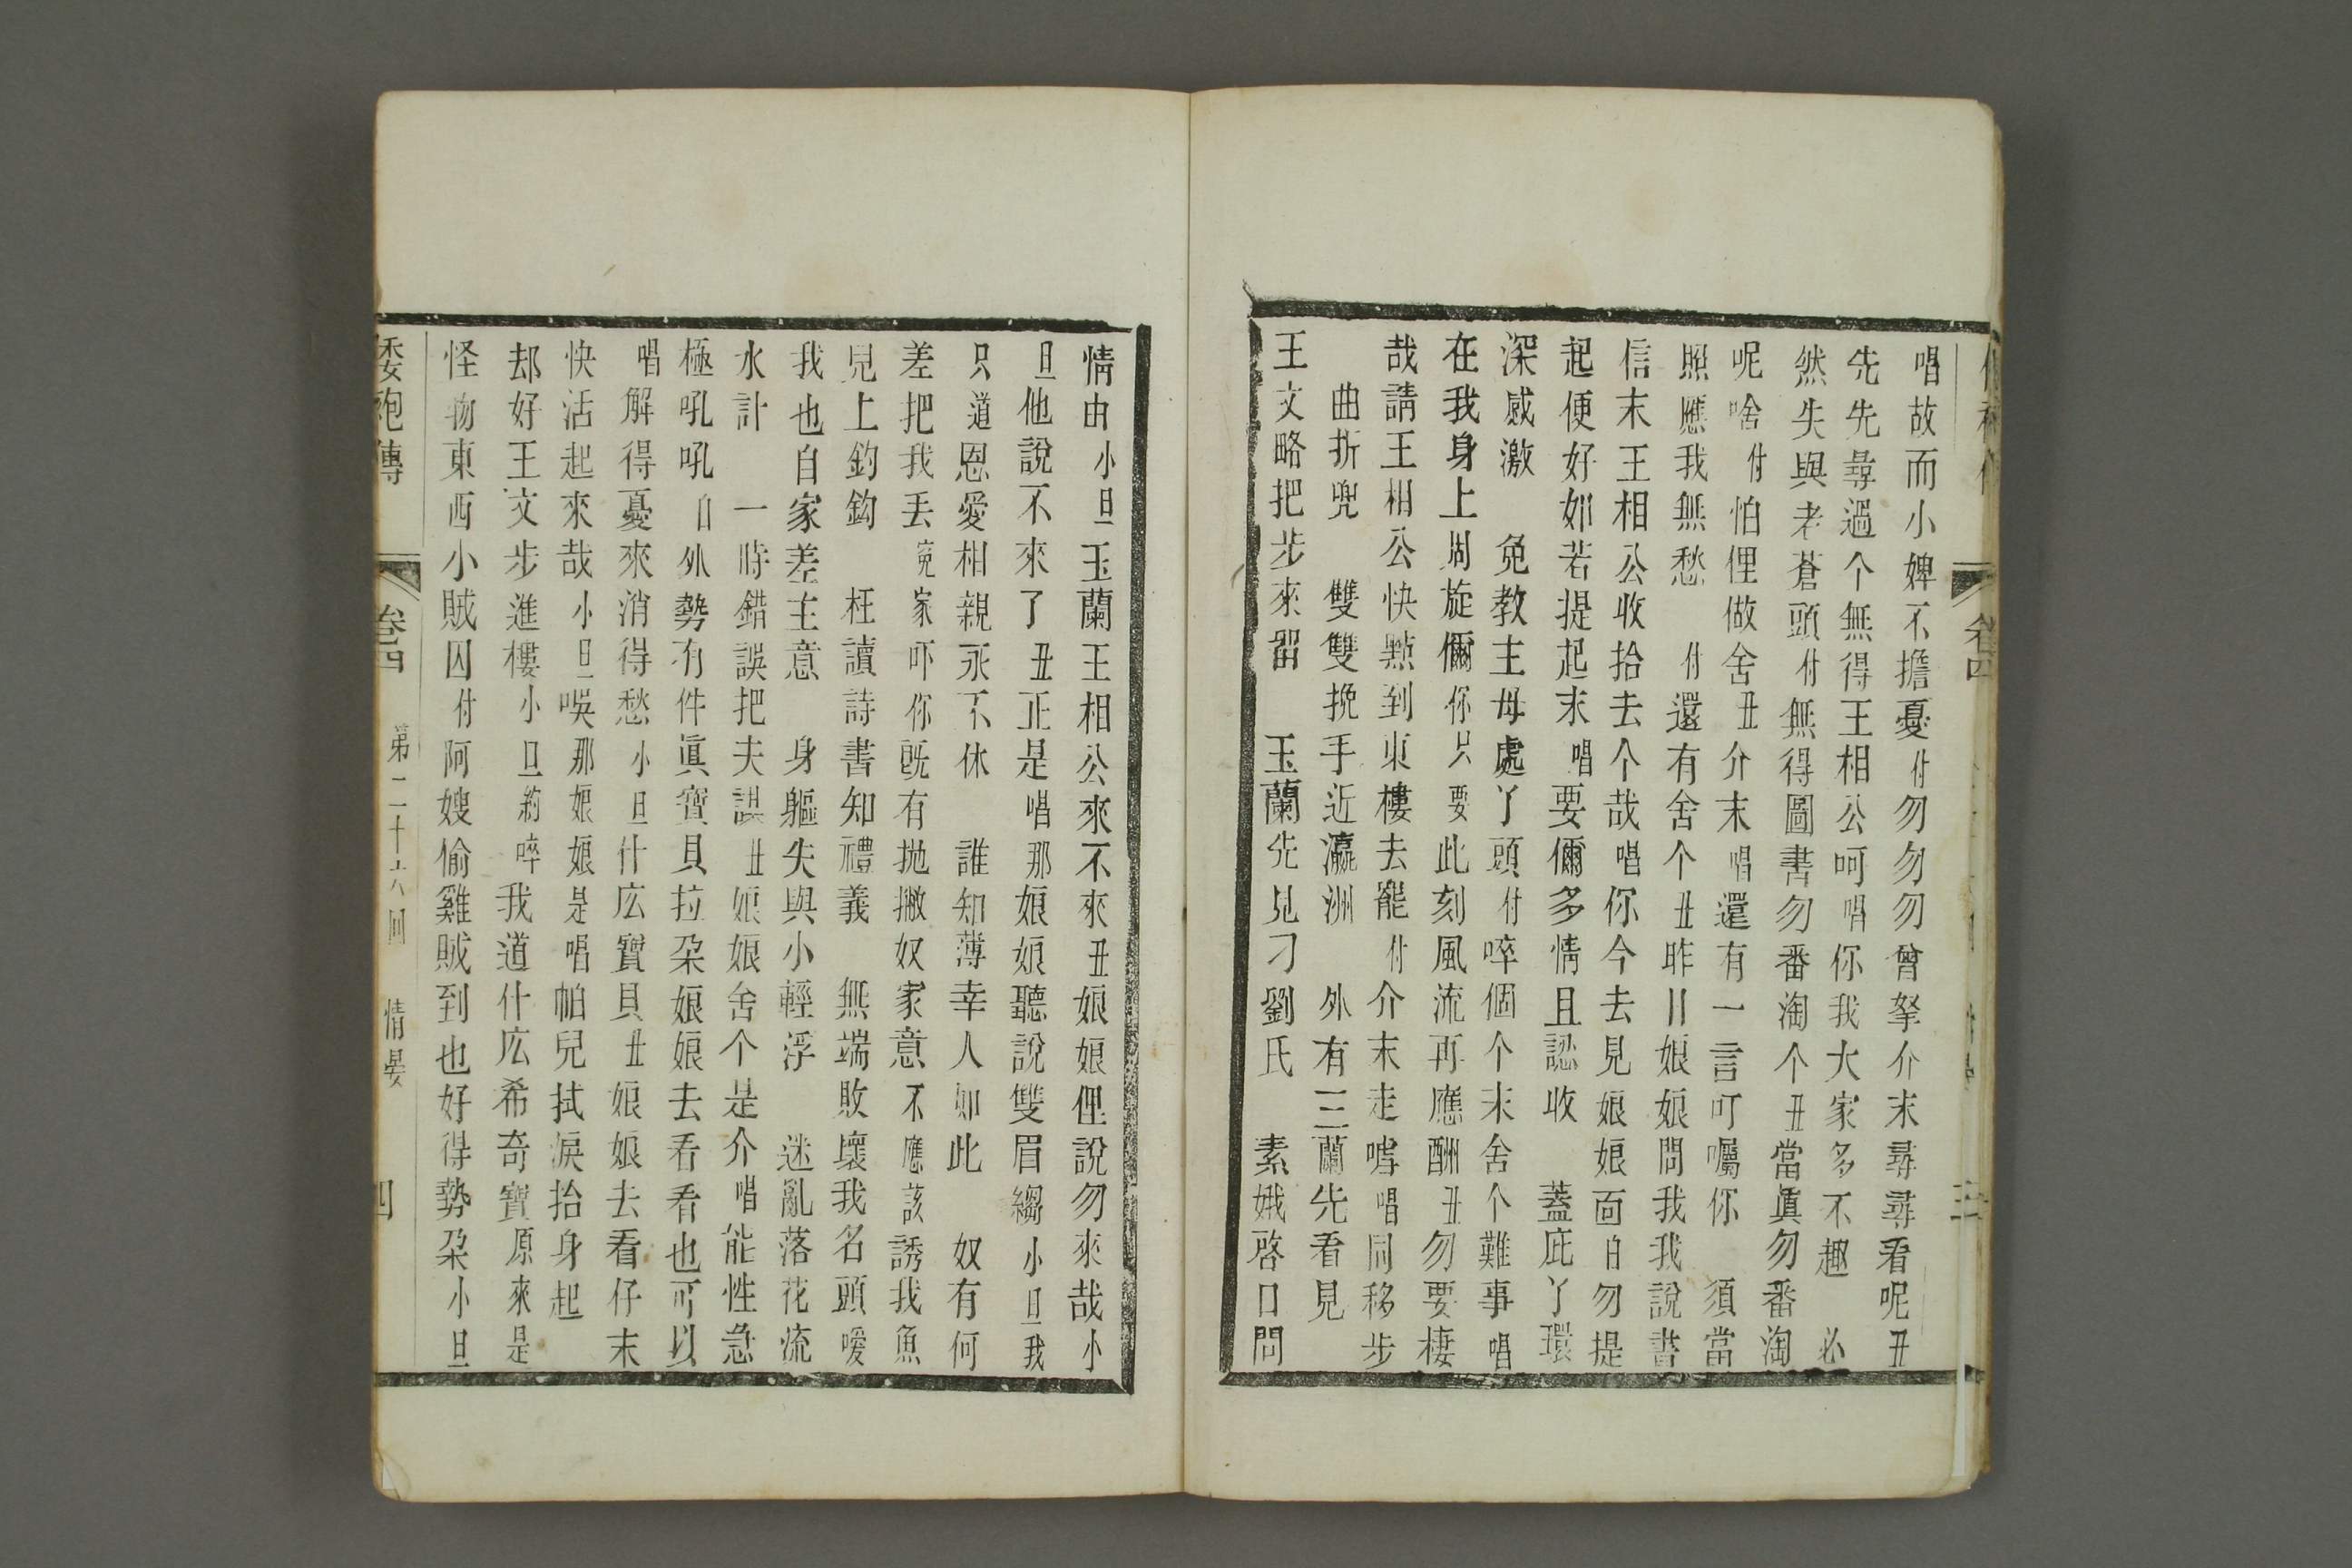 唱故而小婢不擔憂付勿勿勿曾拏介末尋尋看呢丑
先先尋過个無得王相公呵唱你我大家多不趣　必
然失與老蒼頭付無得圖書勿番淘个丑當眞勿番淘
呢啥付怕俚做舍丑介末唱還有一言叮囑你　須當
照應我無愁　付還有舍个丑昨日娘娘問我我說書
信末王相公收拾去个哉唱你今去見娘娘面白勿提
起便好如若提起末唱要儞多情且認收　蓋庇丫環
深感激　免教主母處丫頭付啐個个末舍个難事唱
在我身上周旋儞你只要此刻風流再應酬丑勿要棲
哉請王相公快點到東樓去罷付介末走嘑唱同移步
曲折兜　雙雙挽手近瀛洲　外有三蘭先看見
王文略把步來畱　玉蘭先見刁劉氏　素娥啓口問
卷四
三
情由小旦玉蘭王相公來不來丑娘娘俚說勿來哉小
旦他說不來了丑正是唱那娘娘聽說雙眉縐小旦我
只道恩愛相親永不休　誰知薄幸人如此　奴有何
差把我丟寃家吓你旣有抛撇奴家意不應該誘我魚
兒上釣鈎　枉讀詩書知禮義　無端敗壞我名頭噯
我也自家差主意　身軀失與小輕浮　迷亂落花流
水計　一時錯誤把夫謀丑娘娘舍个是介唱能性急
極吼吼白外勢有件眞寶貝拉朶娘娘去看看也可以
唱解得憂來消得愁小旦什庅寶貝丑娘娘去看仔末
快活起來哉小旦唉那娘娘是唱帕兒拭淚抬身起
却好王文步進樓小旦約啐我道什庅希奇寶原來是
怪物東西小賊囚付阿嫂偷雞賊到也好得勢朶小旦
倭袍傳
卷四
第二十六回
情晏
四